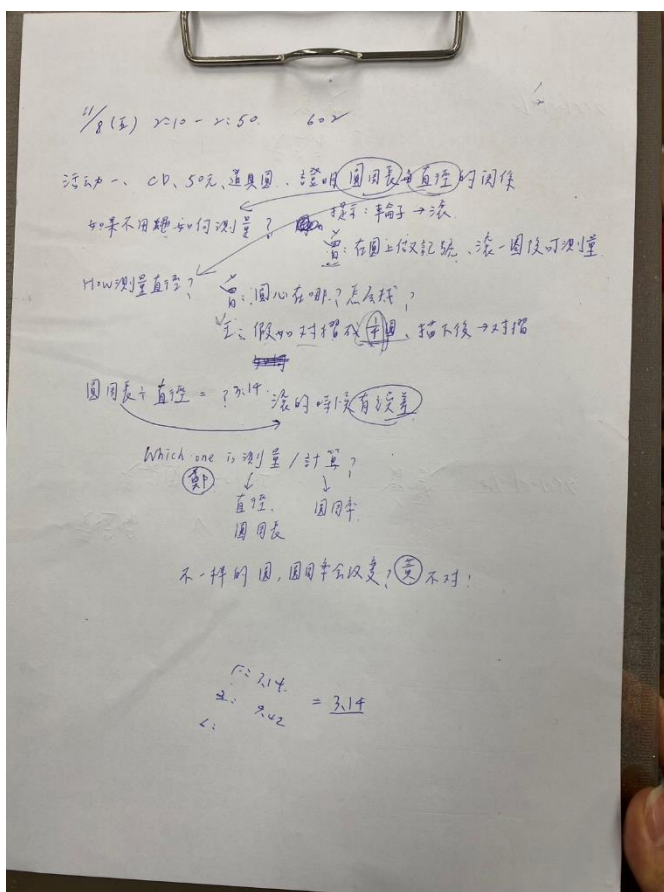 11/8(五) 2:10 - 2:50. 602
活动一、CD、50元、道具圓、證明圓周長與直徑的関係
如果不用繩如何測量? 提示:輪子→滾.
曾:在圓上做記號、滾一圈後可測量
How測量直徑? 曾:圓心在哪?怎么找?
生:假如对摺成半圓、描下後→对摺
圓周長÷直徑=? 3.14. 滾的時候有誤差
Which one is 測量/計算?
鄭
直徑. 圓周率.
圓周長
不一样的圓,圓周率会改变? 黃 不对!
3.14.
9.42 = 3.14